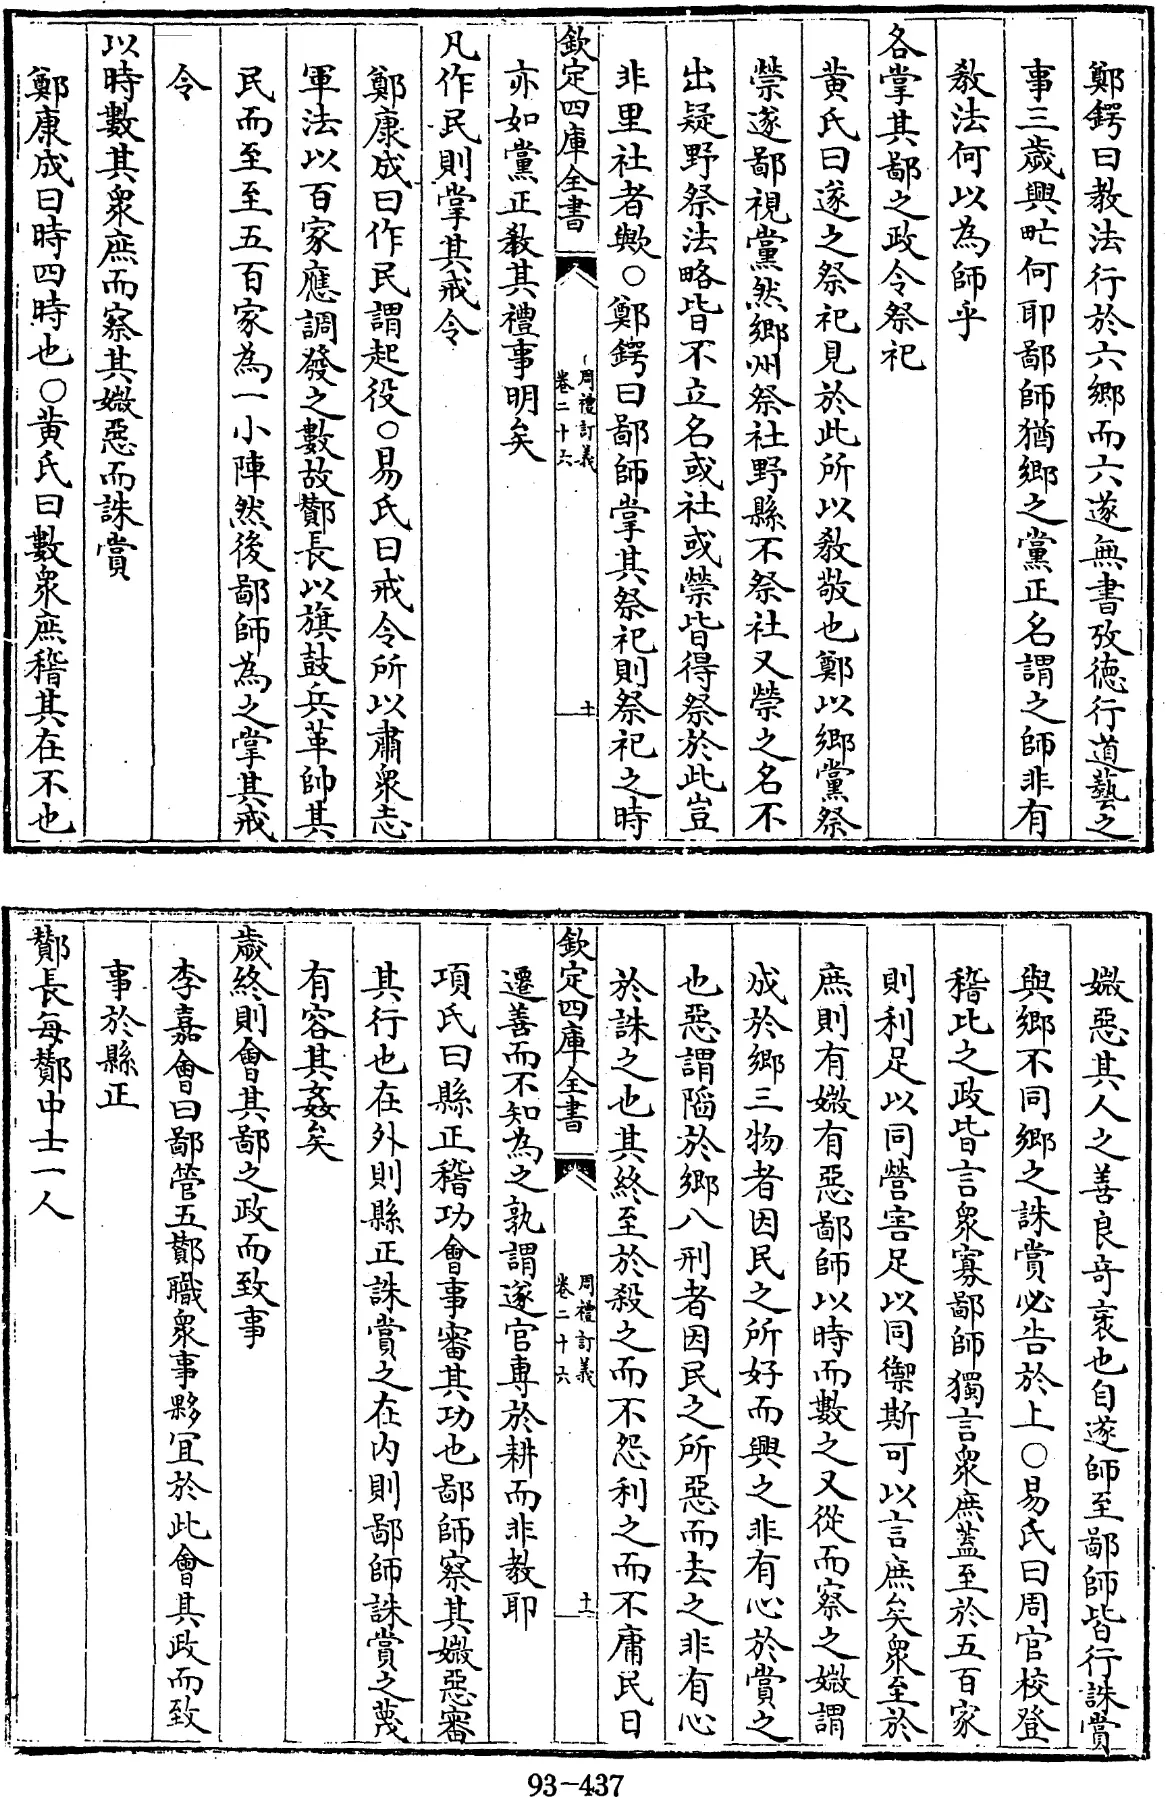 鄭鍔曰教法行於六鄉而六遂無書攷德行道藝之
事三歲興甿何耶鄙師猶鄉之黨正名謂之師非有
教法何以為師乎
各掌其鄙之政令祭祀
黄氏曰遂之祭祀見於此所以教敬也鄭以鄉黨祭
禜遂鄙視黨然鄉州祭社野縣不祭社又禜之名不
出疑野祭法略皆不立名或社或禜皆得祭於此豈
非里社者歟○鄭鍔曰鄙師掌其祭祀則祭祀之時
欽定四庫全書
周禮訂義
卷二十六
十
亦如黨正教其禮事明矣
凡作民則掌其戒令
鄭康成曰作民謂起役○易氏曰戒令所以肅衆志
軍法以百家應調發之數故酇長以旗鼓兵革帥其
民而至至五百家為一小陣然後鄙師為之掌其戒
令
以時數其衆庶而察其媺惡而誅賞
鄭康成曰時四時也○黄氏曰數衆庶稽其在不也
媺惡其人之善良竒衺也自遂師至鄙師皆行誅賞
與鄉不同鄉之誅賞必告於上○易氏曰周官校登
稽比之政皆言衆寡鄙師獨言衆庶蓋至於五百家
則利足以同營害足以同禦斯可以言庶矣衆至於
庶則有媺有惡鄙師以時而數之又從而察之媺謂
成於鄉三物者因民之所好而興之非有心於賞之
也惡謂陷於鄉八刑者因民之所惡而去之非有心
於誅之也其終至於殺之而不怨利之而不庸民日
欽定四庫全書
周禮訂義
卷二十六
十一
遷善而不知為之孰謂遂官專於耕而非教耶
項氏曰縣正稽功會事審其功也鄙師察其媺惡審
其行也在外則縣正誅賞之在内則鄙師誅賞之蔑
有容其姦矣
歲終則會其鄙之政而致事
李嘉會曰鄙管五酇職衆事夥宜於此會其政而致
事於縣正
酇長每酇中士一人
93-437